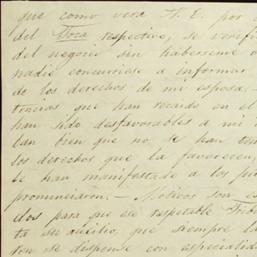 que como vera V. E. por
del Toca respectivo, se verif
del negocio sin habérseme o
nadie concurriese a informar
de los derechos de mi esposa.-
tencias que han recaido en el
han sido desfavorables a mi
tan bien que no se han ten
sos derechos que la favorecen,
le han manifestado a los
pronunciaron.- Motivos son
dos para que ese respetable Trib
ta su auxilio, que siempre la
ron se dispense con especialid